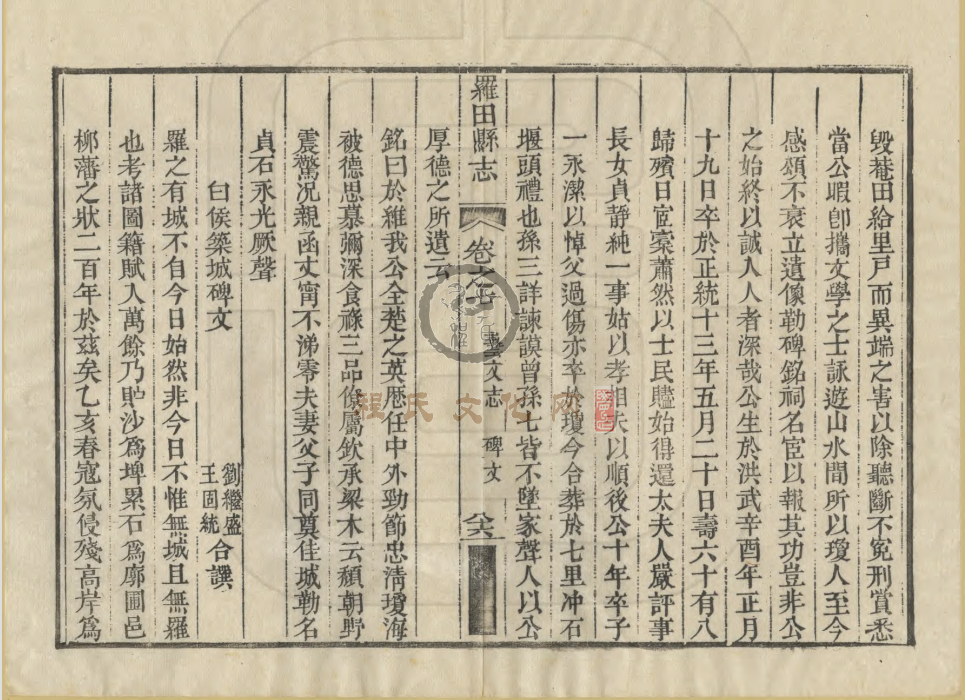 毀菴田給里戸而異端之害以除聽斷不寃刑賞悉
當公暇卽擕文學之士詠遊山水間所以瓊人至今
感頌不衰立遺像勒碑銘祠名宦以報其功豈非公
之始終以誠人人者深哉公生於洪武辛酉年正月
十九日卒於正統十三年五月二十日壽六十有八
歸殯日宦槖蕭然以士民贐始得還太夫人嚴評事
長女貞靜純一事姑以孝相夫以順後公十年卒子
一永潔以悼父過傷亦卒於瓊今合葬於七里冲石
堰頭禮也孫三詳諫謨曾孫七皆不墜家聲人以公
厚德之所遺云
羅田縣志
卷之
藝文志
碑文
銘曰於維我公全楚之英歷任中外勁節忠淸瓊海
被德思慕彌深食祿三品僚屬欽承梁木云頹朝野
震驚况親函丈寗不涕零夫妻父子同奠佳城勒名
貞石永光厥聲
曰侯築城碑文
劉繼盛
王固統
合譔
羅之有城不自今日始然非今日不惟無城且無羅
也考諸圖籍賦入萬餘乃貯沙爲埤累石爲廓圃邑
柳藩之狀二百年於茲矣乙亥春寇氛侵殘高岸爲
程氏文化网